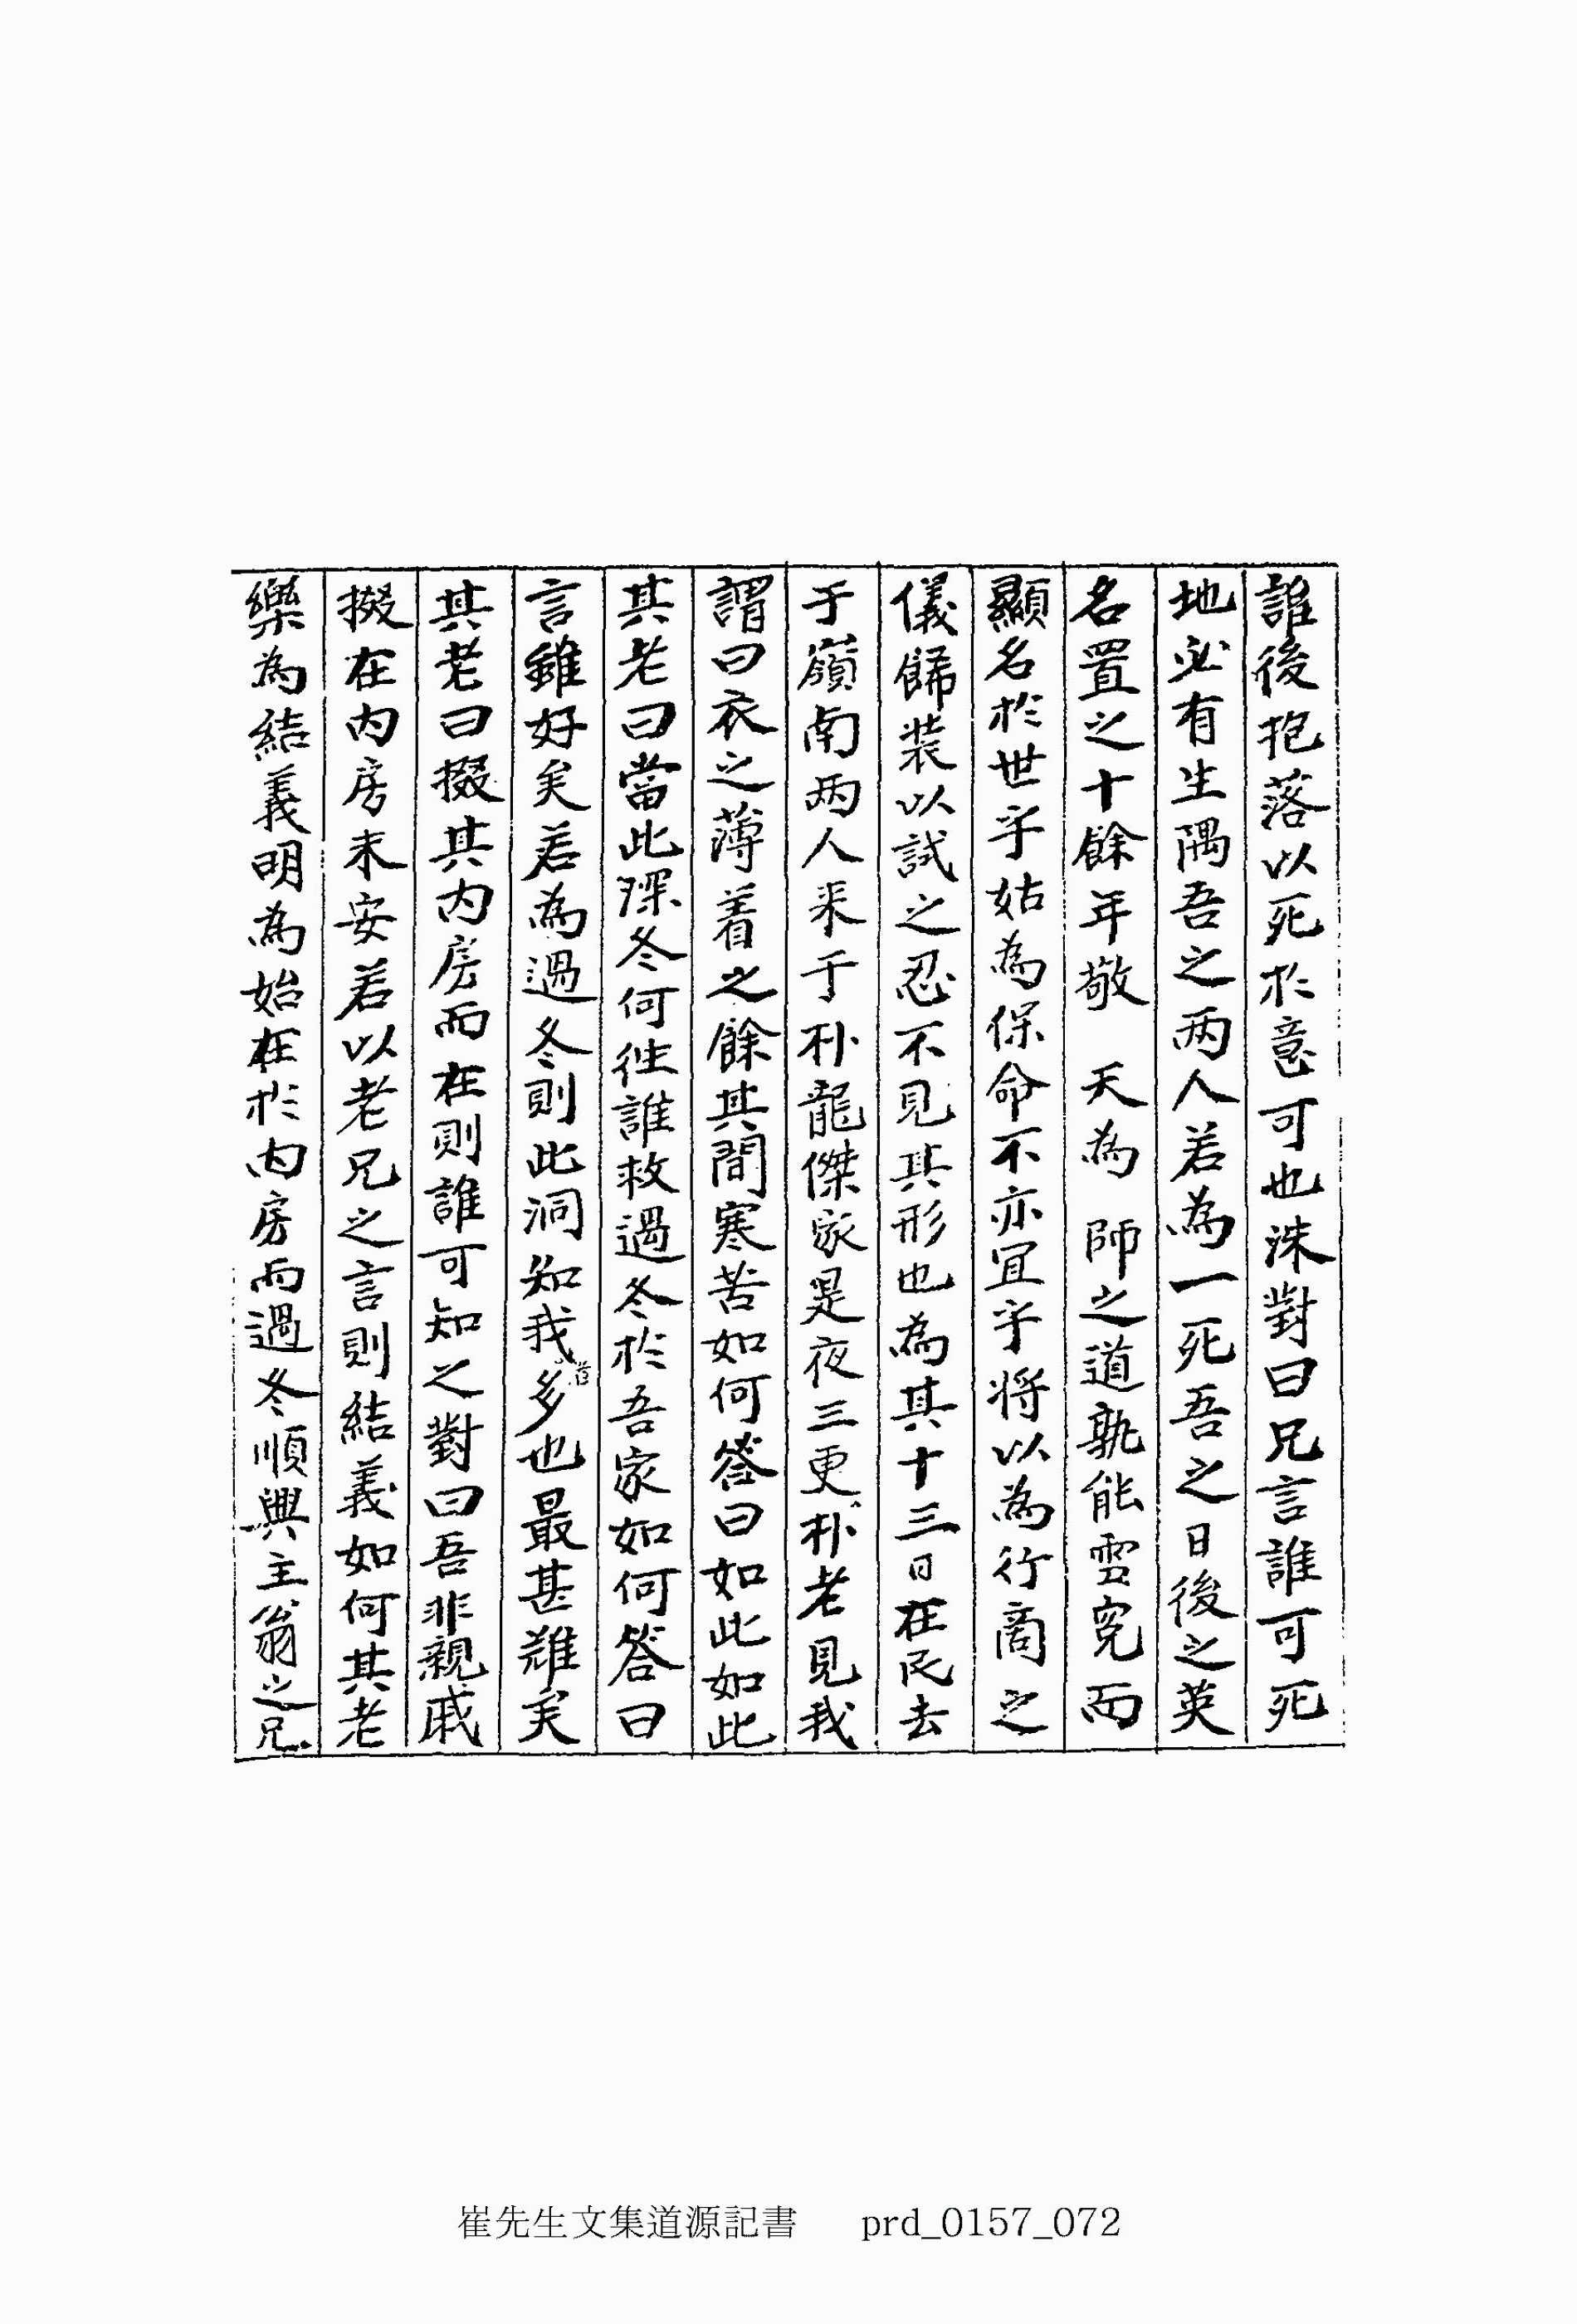 誰後抱落以死於意可也洙對曰兄言誰可死
地必有生隅吾之両人若為一死吾之日後之英
名置之十餘年敬 天為 師之道孰能雪寃而
顯名於世乎姑為保命不亦宜乎将以為行商之
儀歸装以試之忍不見其形也為其十三日在民去
于嶺南両人来于朴龍傑家是夜三更朴老見我
謂曰衣之薄着之餘其間寒苦如何答曰如此如此
其老曰當此深冬何徃誰救過冬於吾家如何答曰
言雖好矣若為過冬則此洞知我者多也最甚難矣
其老曰掇其内房而在則誰可知之對曰吾非親戚
掇在内房未安若以老兄之言則結義如何其老
樂為結義明為始在於内房而過冬順興主翁之兄
崔先生文集道源記書 prd_0157_072